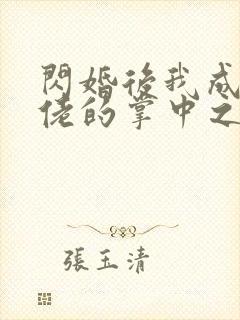 閃婚後我成
佬的掌中之
張玉清